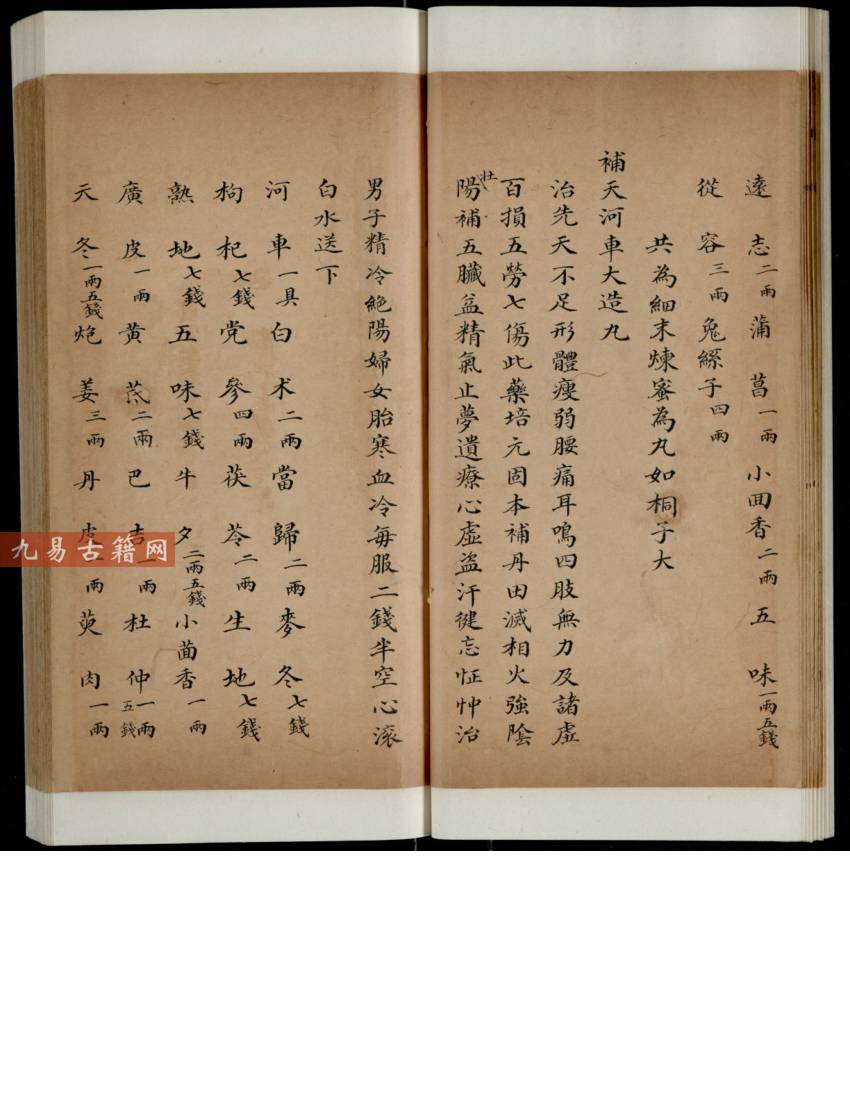 遠志二兩蒲菖一兩小回香二兩五味一兩五錢
從容三兩兔絲子四兩
共為細末煉蜜為丸如桐子大
補天河車大造丸
治先天不足形體瘦弱腰痛耳鳴四肢無力及諸虛
百損五勞七傷此藥培元固本補丹田滅相火強陰
壯陽補五臟益精氣止夢遺療心虛盜汗健忘怔忡治
男子精冷絕陽婦女胎寒血冷每服二錢半空心滚
白水送下
河車一具白术二兩當歸二兩麥冬七錢
枸杞七錢党參四兩茯苓二兩生地七錢
熟地七錢五味七錢牛夕二兩五錢小茴香一兩
廣皮一兩黄芪二兩巴吉一兩杜仲一兩五錢
天冬一兩五錢炮姜三兩丹皮一兩萸肉一兩
九易古籍网